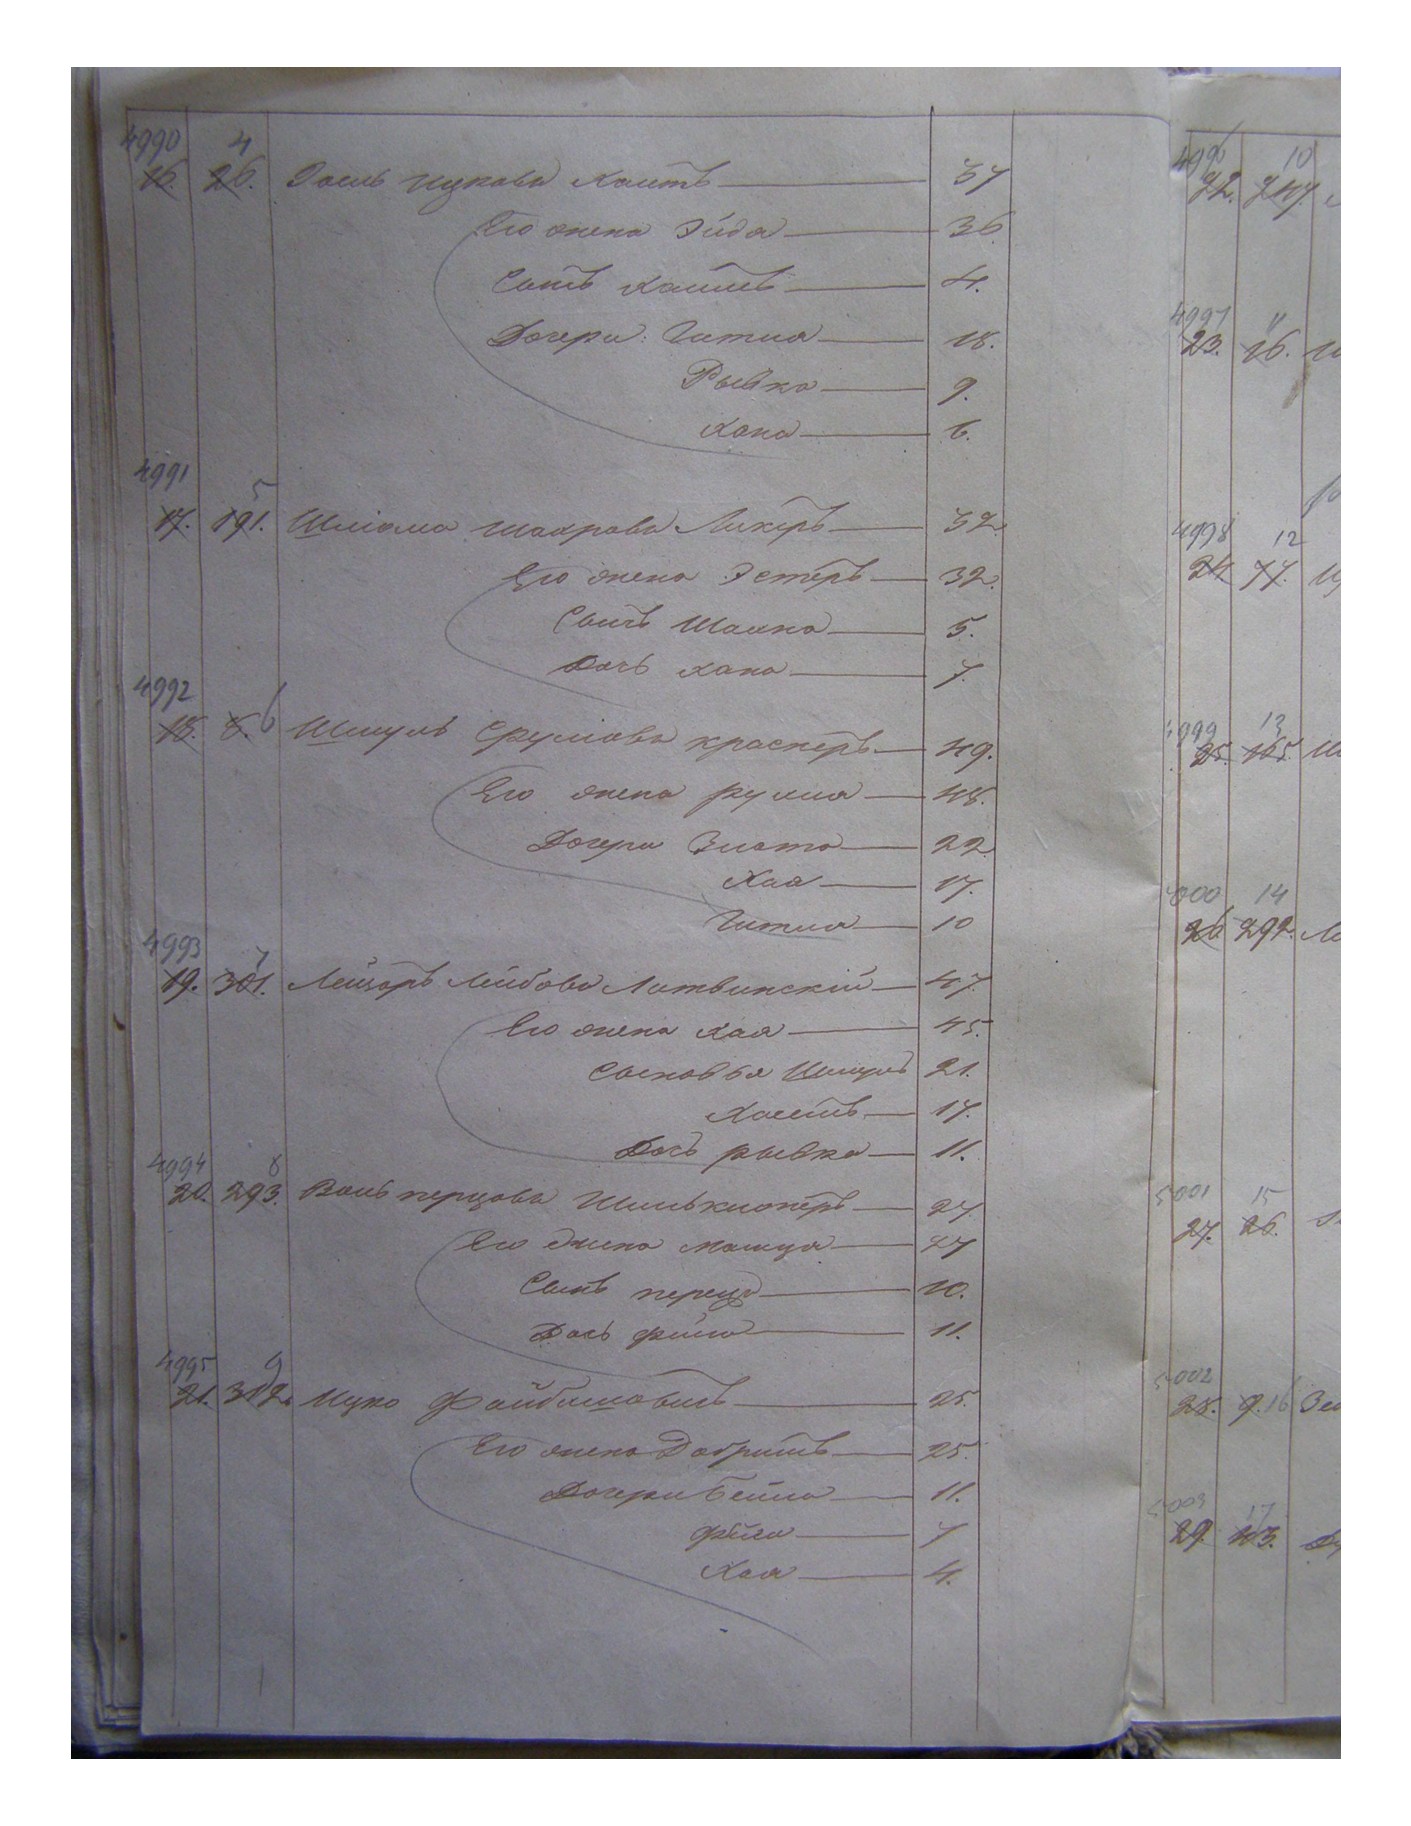 4990 4
16. 26. Ицкова Хаимъ 37
Его жена Эйда 36
Сынъ Хаимъ 4.
Дочери: Гитля 18.
Рывка 9.
Хана 6.
4991 5
17. 191. Шліома Ликеръ 32.
Его жена Эстеръ 32.
Сынъ 5.
Дочь Хана 7.
4992 6
18. 8. Шмуль Сруліова 49.
Его жена Рухля 48.
Дочери Злата 22
Хая 17.
Гитля 10
4993 7
19. 301. Лейзоръ Лейбова Литвинскій 47.
Его жена Хая 45.
Сыновья Шмуль 21.
Хаимъ 17.
Дочь Рывка 11.
4994 8
20. 293. Перцова 27
Его жена 27
Сынъ Перецъ 10.
Дочь Фейга 11.
4995 9
21. 312. Ицко Файбишовичъ 25.
Его жена Добришъ 25.
Дочери Бейла 11.
Фейга 7
Хая 4.
4996 10
22. 247.
4997 11
23. 16.
4998 12
24. 77.
4999 13
25. 165.
5000 14
26. 292.
5001 15
27. 26.
5002
28. 9. 16
5003 17
29. 103.